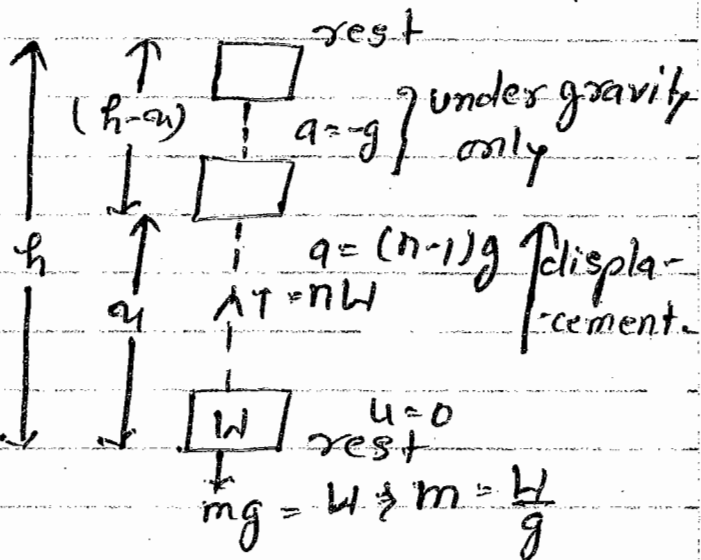 rest
(h-x)
a=-g } under gravity
only
h
x
a = (n-1)g
displa-
-cement.
T = nW
W
u = 0
rest
mg = W ; m = W/g